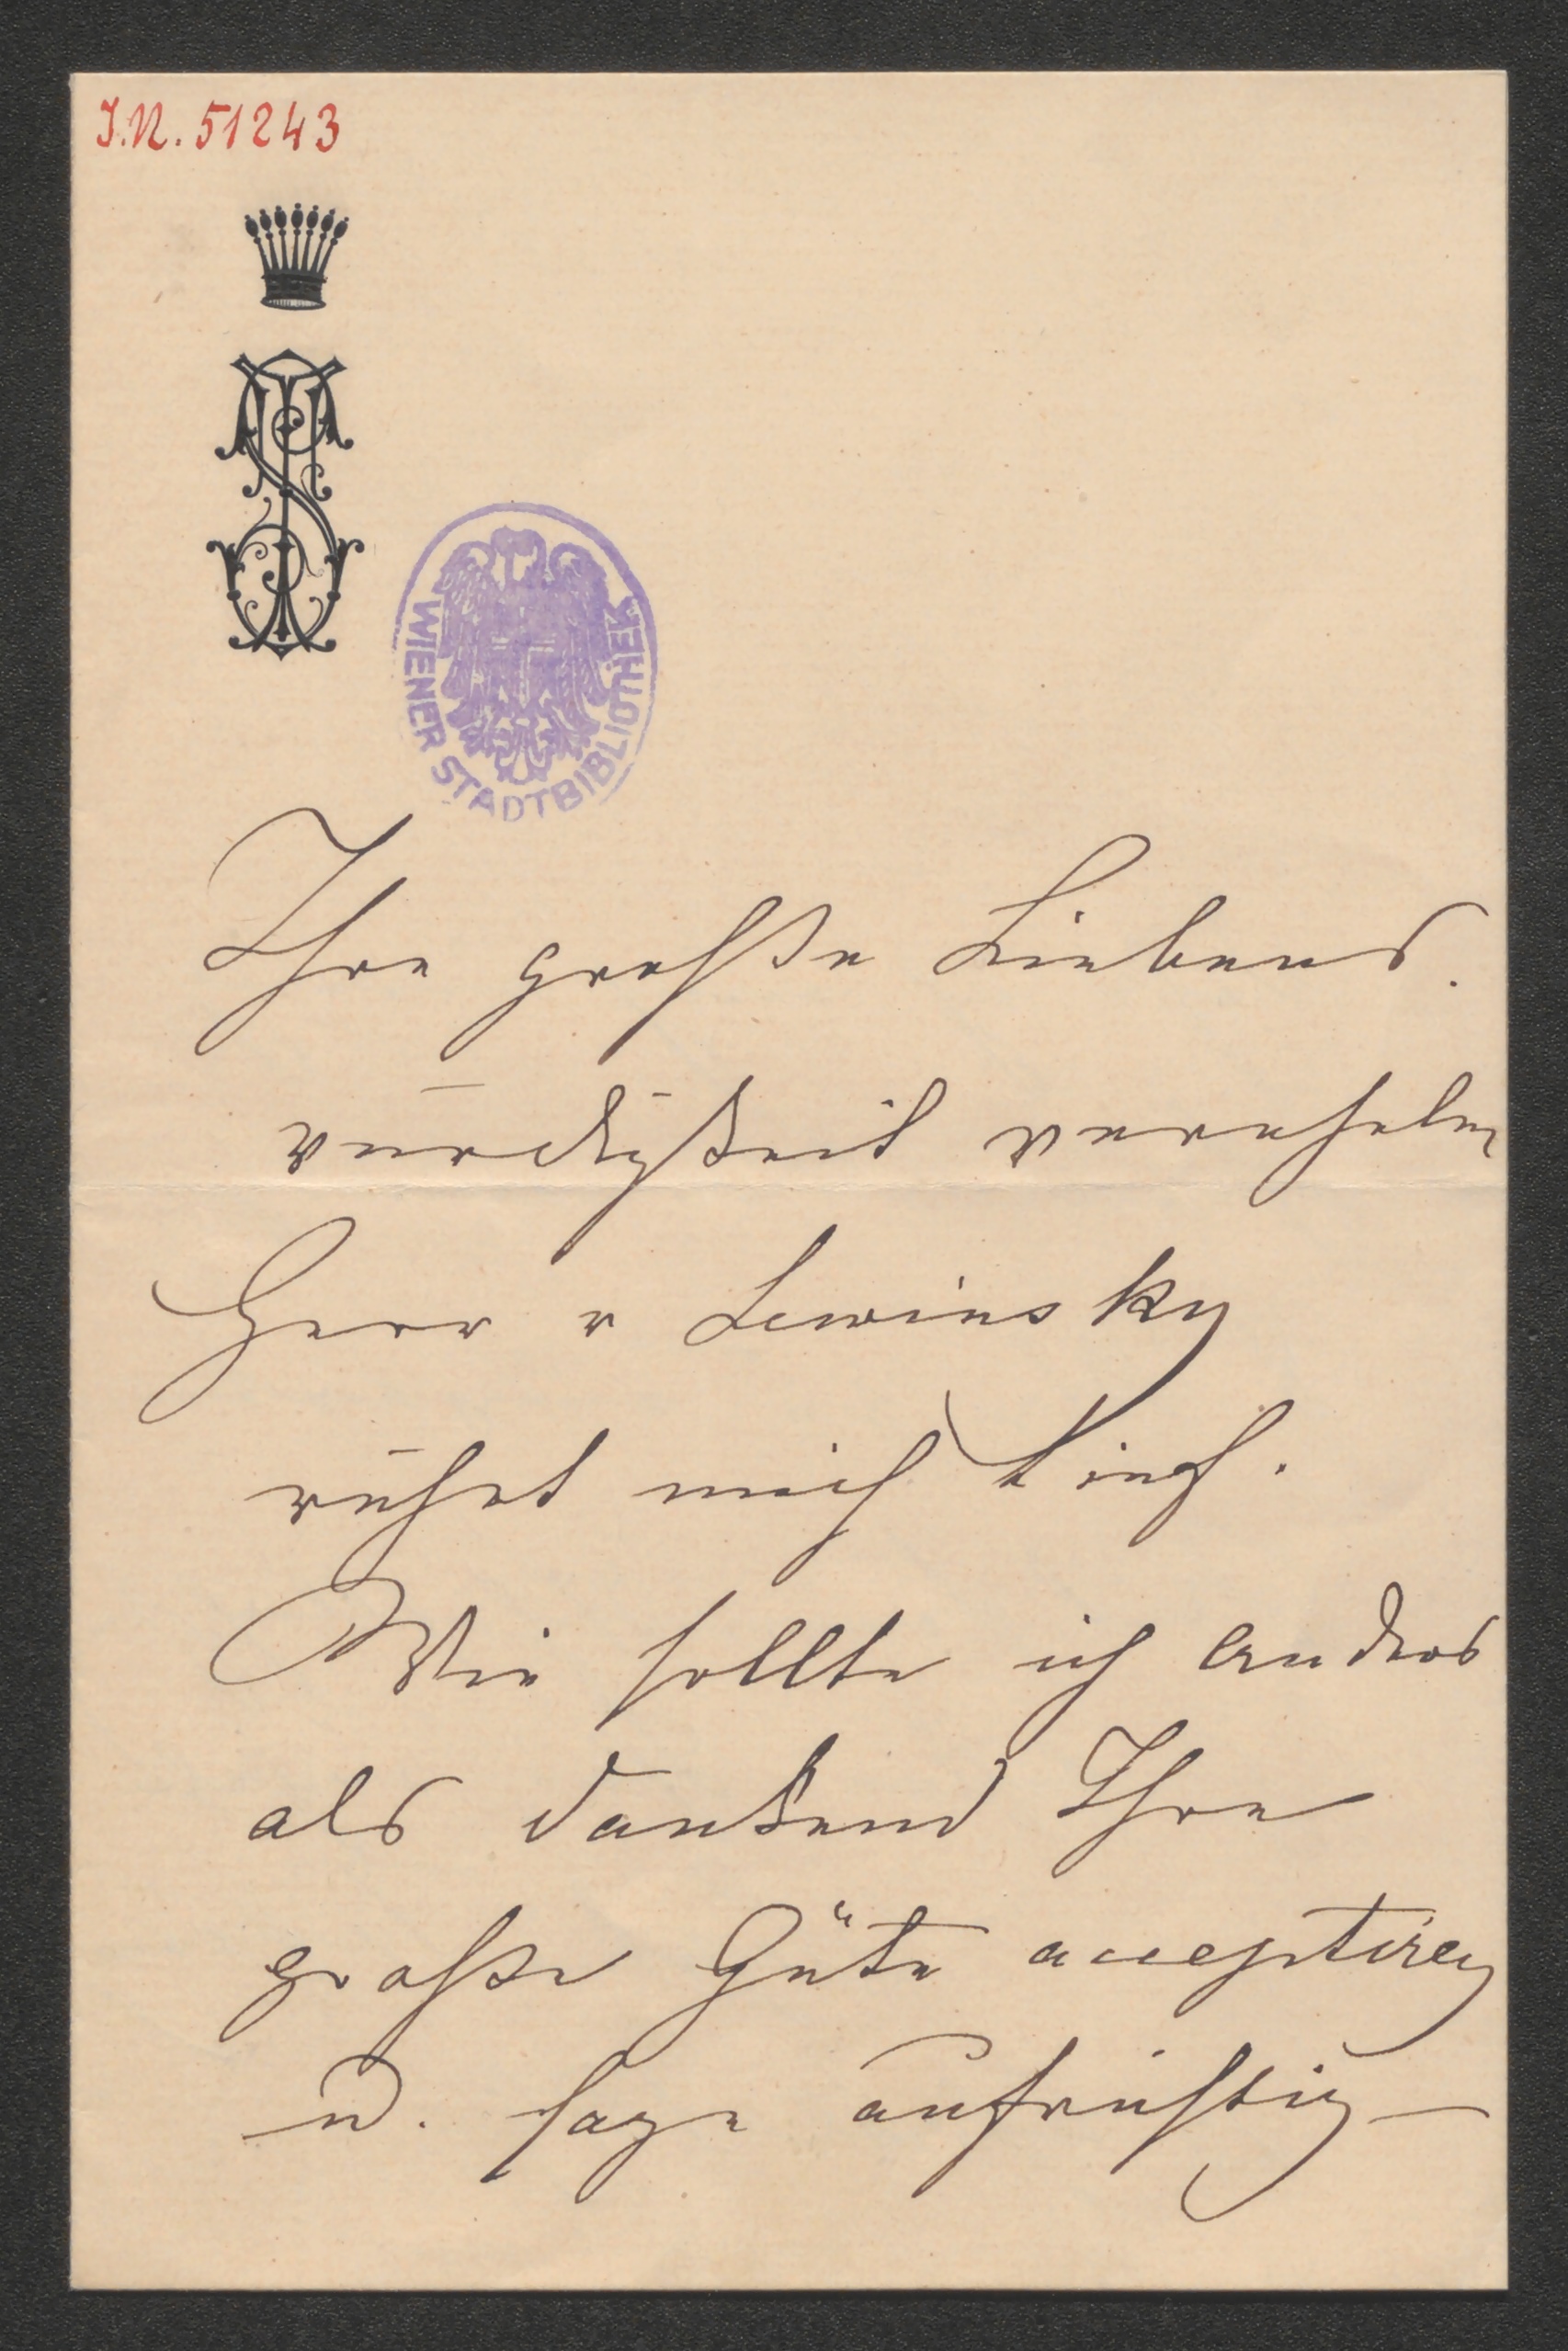 I.N. 51243
WIENER STADTBIBLIOTHEK
Ihre große Liebens.
würdigkeit verehrter
Herr v Lewinsky
rührt mich tief.
Wie sollte ich anders
als dankend Ihre
große Güte acceptiren
u. sage aufrichtig